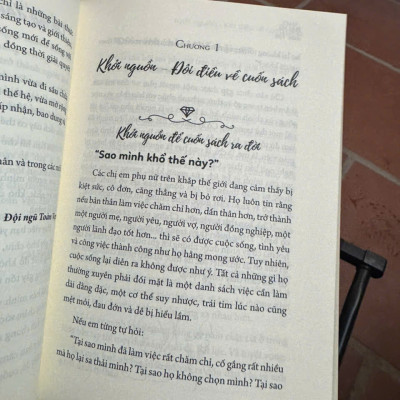 hỉ là những bài thực
sáng tạo và giới thiệu
sống mới để sống
đồng thời giải quyết
mình vừa đi sâu
thế hệ, vừa mở rộng
ấp nhận, bao dung
uân và trong các mối
Đội ngũ Toàn
CHƯƠNG 1
Khởi nguồn - Đôi điều về cuốn sách
Khởi nguồn để cuốn sách ra đời
"Sao mình khổ thế này?"
Các chị em phụ nữ trên khắp thế giới đang cảm thấy bị
kiệt sức, cô đơn, căng thẳng và bị bỏ rơi. Họ luôn tin rằng
nếu bản thân làm việc chăm chỉ hơn, dấn thân hơn, trở thành
một người mẹ, người yêu, người vợ, người đồng nghiệp, một
người lãnh đạo tốt hơn... thì sẽ có được cuộc sống, tình yêu
và công việc thành công như họ hằng mong ước. Tuy nhiên,
cuộc sống lại diễn ra không được như ý. Tất cả những gì họ
thường xuyên phải đối mặt là một danh sách việc cần làm
dài dằng dặc, một cơ thể suy nhược, trái tim lúc nào cũng
mệt mỏi, đau đớn và dễ bị hiểu lầm.
Nếu em từng tự hỏi:
"Tại sao mình đã làm việc rất chăm chỉ, cố gắng rất nhiều
mà họ lại sa thải mình? Tại sao họ không chọn mình? Tại sao